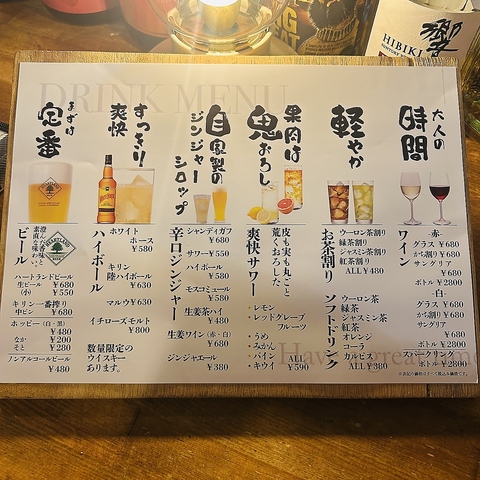 HIBIKI
響
DRINK MENU
大人の
時間
軽やか
果肉は
鬼おろし
自家製の
ジンジャー
シロップ
すっきり!
爽快
まずは
定番
ワイン
-赤-
グラス ¥680
かち割り ¥680
サングリア
¥680
ボトル ¥2800
-白-
グラス ¥680
かち割り ¥680
サングリア
¥680
ボトル ¥2800
スパークリング
ボトル ¥2800
お茶割り
ウーロン茶割り
緑茶割り
ジャスミン茶割り
紅茶割り
ALL ¥480
ソフトドリンク
ウーロン茶
緑茶
ジャスミン茶
紅茶
オレンジ
コーラ
カルピス
ALL ¥380
皮も実も丸ごと
荒くおろした
爽快サワー
・レモン
・レッドグレープ
フルーツ
・うめ
・みかん
・パイン
・キウイ
ALL
¥590
辛口ジンジャー
シャンディガフ
¥680
サワー ¥550
ハイボール
¥580
モスコミュール
¥580
生姜茶ハイ
¥480
生姜ワイン(赤・白)
¥680
ジンジャエール
¥380
ハイボール
ホワイト
ホース
¥580
キリン
陸ハイボール
¥630
マルウ ¥630
イチローズモルト
¥800
数量限定の
ウイスキー
あります。
HEARTLAND
澄んだ香味、
素直な味わい
ビール
ハートランドビール
生ビール ¥680
(小) ¥550
キリン一番搾り
中ビン ¥680
ホッピー(白・黒)
¥480
なか ¥200
そと ¥280
ノンアルコールビール
¥480